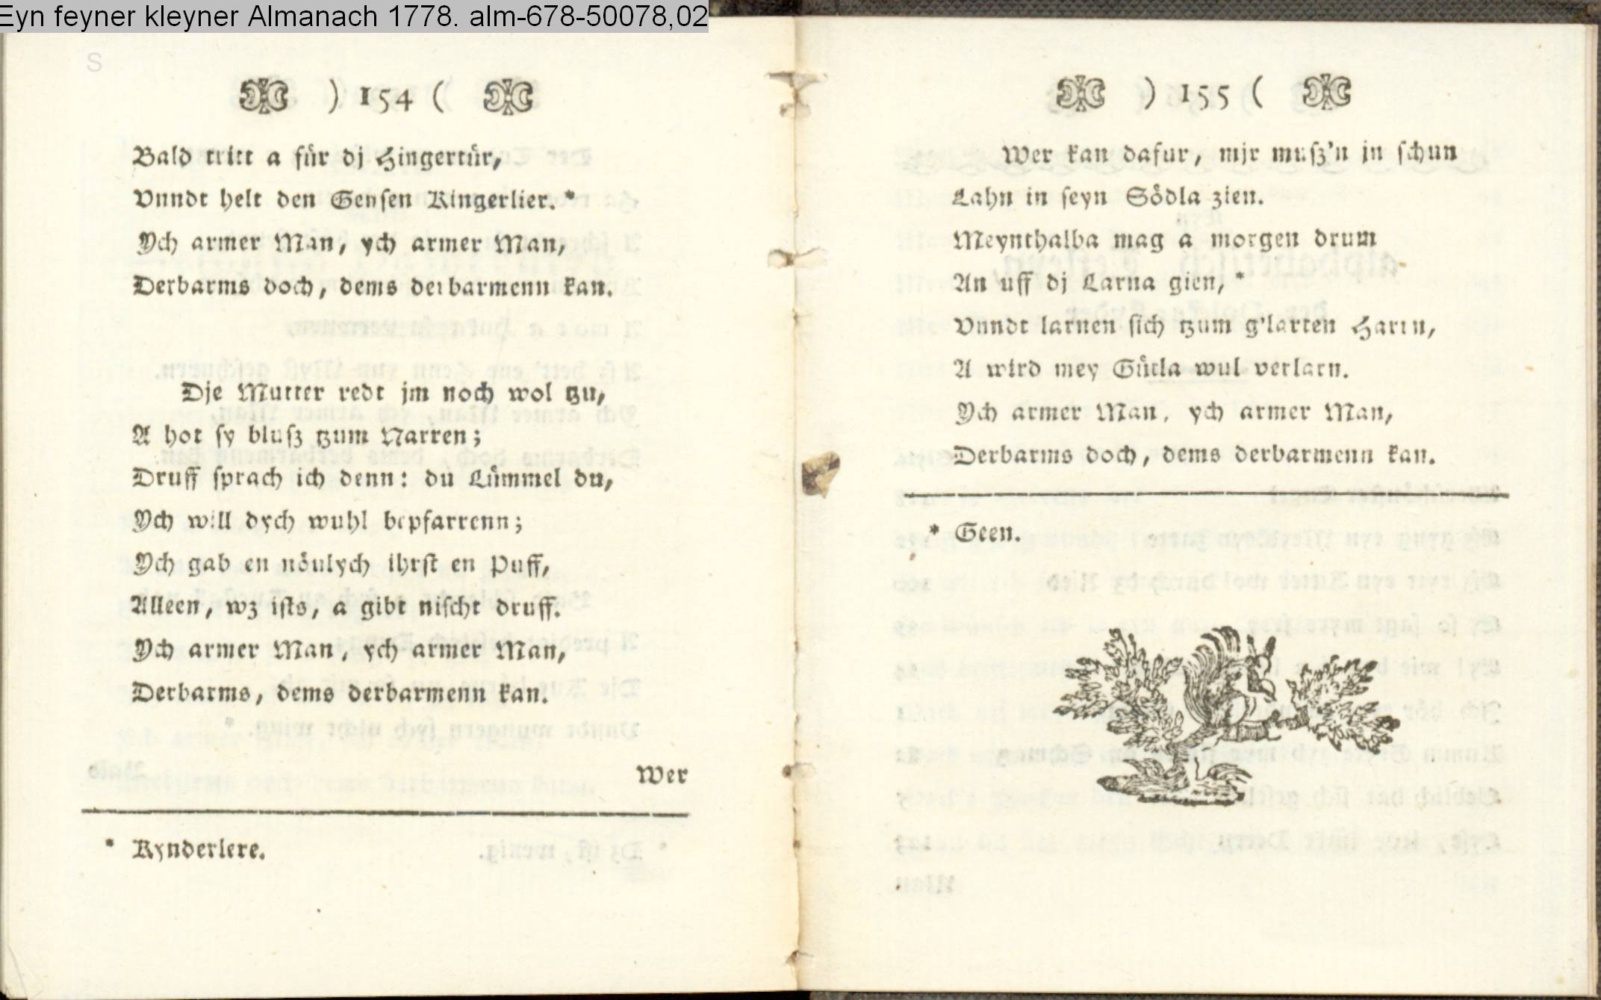 Eyn feyner kleyner Almanach 1778. alm-678-50078,02
S
) 154 (
Bald tritt a für dj Hingertür,
Vnndt helt den Gensen Kingerlier.*
Ych armer Man, ych armer Man,
Derbarms doch, dems derbarmenn kan.
Dje Mutter redt jm noch wol tzu,
A hot sy blusz tzum Narren;
Druff sprach ich denn: du Lümmel du,
Ych will dych wuhl bepfarrenn;
Ych gab en nöulych ihrst en Puff,
Alleen, wz ists, a gibt nischt druff.
Ych armer Man, ych armer Man,
Derbarms, dems derbarmenn kan.
Wer
* Kynderlere.
) 155 (
Wer kan dafur, mjr musz'n jn schun
Lahn in seyn Södla zien.
Meynthalba mag a morgen drum
An uff dj Larna gien,*
Vnndt larnen sich tzum g'larten Harrn,
A wird mey Gütla wul verlarn.
Ych armer Man, ych armer Man,
Derbarms doch, dems derbarmenn kan.
* Geen.